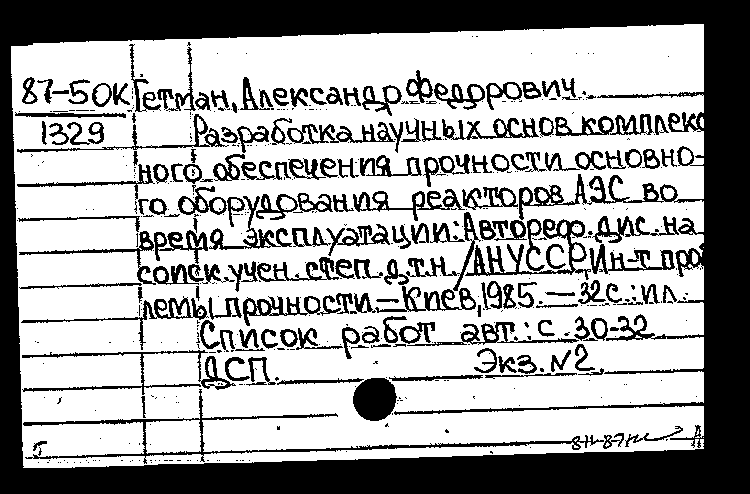 87-5ОК Гетман, Александр Федорович.
1329 Разработка научных основ комплекс
ного обеспечения прочности основно-
го оборудования реакторов АЭС во
время эксплуатации: Автореф. дис. на
соиск. учен. степ. д.т.н. / АН УССР, Ин-т проб
лемы прочности. — Киев, 1985. — 32с.: ил.
Список работ авт.: с. 30-32
ДСП. Экз. N2.